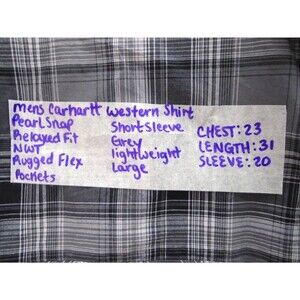 mens Carhartt Western Shirt
Pearl Snap
Relaxed Fit
NWT
Rugged Flex
Pockets
Short Sleeve
Grey
lightweight
Large
CHEST: 23
LENGTH: 31
SLEEVE: 20